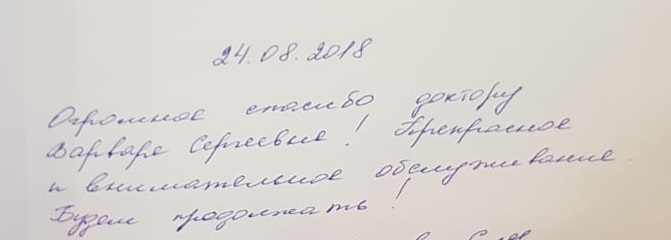 24.08.2018
Огромное спасибо доктору
Варваре Сергеевне! Прекрасное
и внимательное обслуживание.
Будем продолжать!